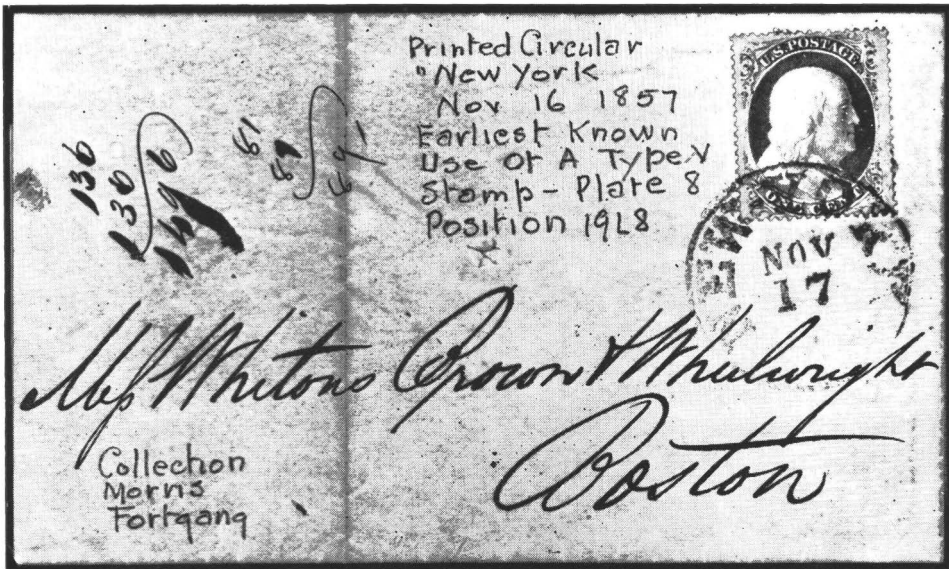 Printed Circular
"New York
Nov 16 1857
Earliest Known
Use Of A Type V
Stamp - Plate 8
Position 19L8
U.S. POSTAGE
NOV
17
136
136
1496
81
89
89
Mess Whitons Brown & Wheelwright
Boston
Collection
Morris
Fortgang